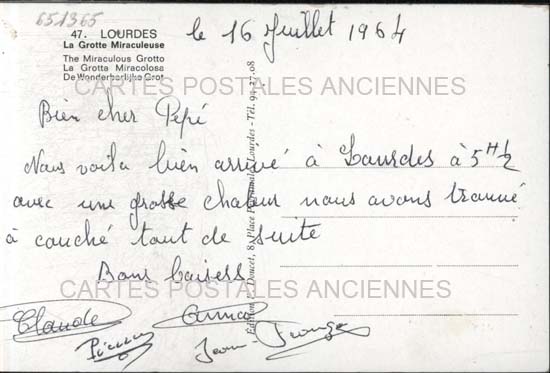 651365
47. LOURDES
La Grotte Miraculeuse
The Miraculous Grotto
La Grotta Miracolosa
De Wonderbarlijke Grot
le 16 Juillet 1964
CARTES POSTALES ANCIENNES
Bien cher Pépé
Nous voila bien arrivé à Lourdes à 5 H 1/2
avec une grosse chaleur nous avons trouvé
à couché tout de suite
Bons baisers
CARTES POSTALES ANCIENNES
Claude
Jean
Edition Doucet, 8, Place Lourdes - Tél. 94-27.08